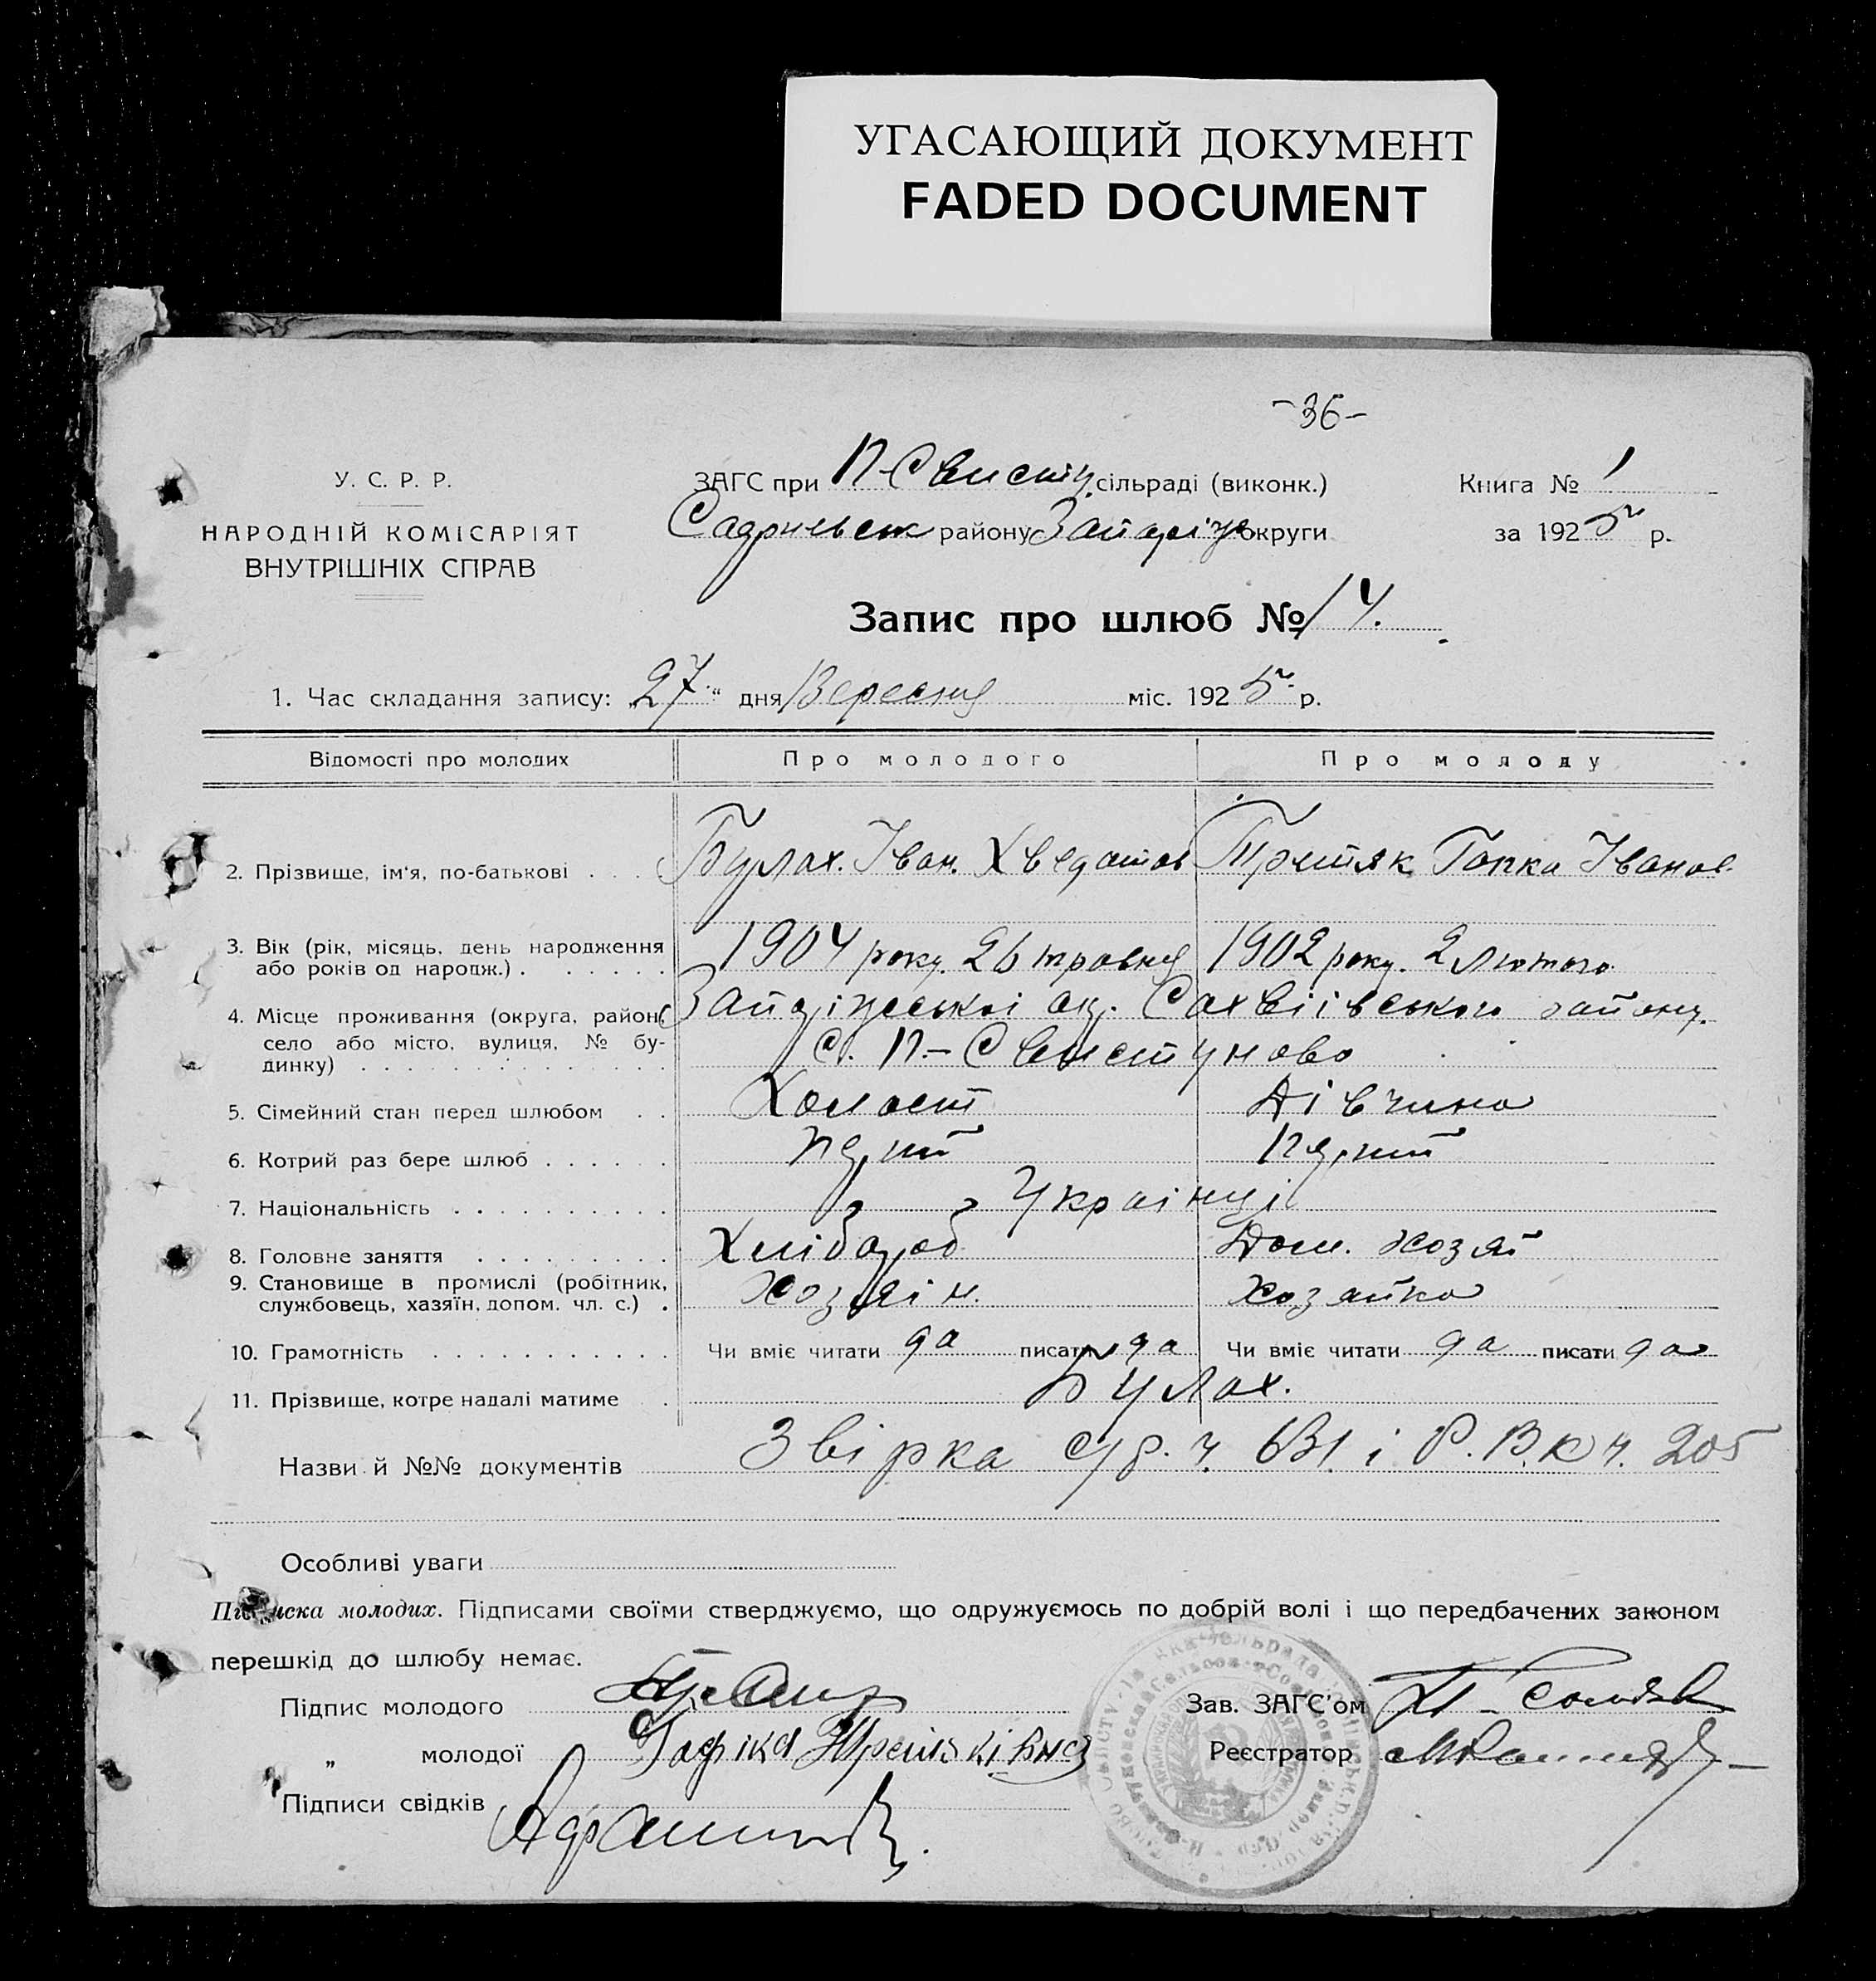 УГАСАЮЩИЙ ДОКУМЕНТ
FADED DOCUMENT
-36-
У. С. Р. Р.
НАРОДНІЙ КОМІСАРІЯТ
ВНУТРІШНІХ СПРАВ
ЗАГС при П-Свисту. сільраді (виконк.)
району округи
Книга № 1
за 1925 р.
Запис про шлюб № 14.
1. Час складання запису: „27" дня Вересня міс. 1925 р.
Відомості про молодих Про молодого Про молоду
2. Прізвище, ім'я, по-батькові . . . Булах. Іван. Хведотов Третяк Гапка Іванов.
3. Вік (рік, місяць, день народження
або років од народж.) . . . . . . 1904 року. 26 травня 1902 року. 2 Лютого
4. Місце проживання (округа, район,
село або місто, вулиця, № бу-
динку) . . . . . . . . . . . .
Запоріжської ок. Сохвіівського району.
с. П.-Свистуново
5. Сімейний стан перед шлюбом . . Холост Дівчина
6. Котрий раз бере шлюб . . . . . . перший перший
7. Національність . . . . . . . . . Українці
8. Головне заняття . . . . . . . . Хлібороб Дом. хозяй
9. Становище в промислі (робітник,
службовець, хазяїн, допом. чл. с.) . Хозяін. хозяйка
10. Грамотність . . . . . . . . . . Чи вміє читати да писати да Чи вміє читати да писати да
11. Прізвище, котре надалі матиме . Булах.
Назви й №№ документів Звірка ч. і Р.В.К ч. 205
Особливі уваги
Підписка молодих. Підписами своїми стверджуємо, що одружуємось по добрій волі і що передбачених законом
перешкід до шлюбу немає.
Підпис молодого
Зав. ЗАГС'ом
„ молодої
Реєстратор
Підписи свідків